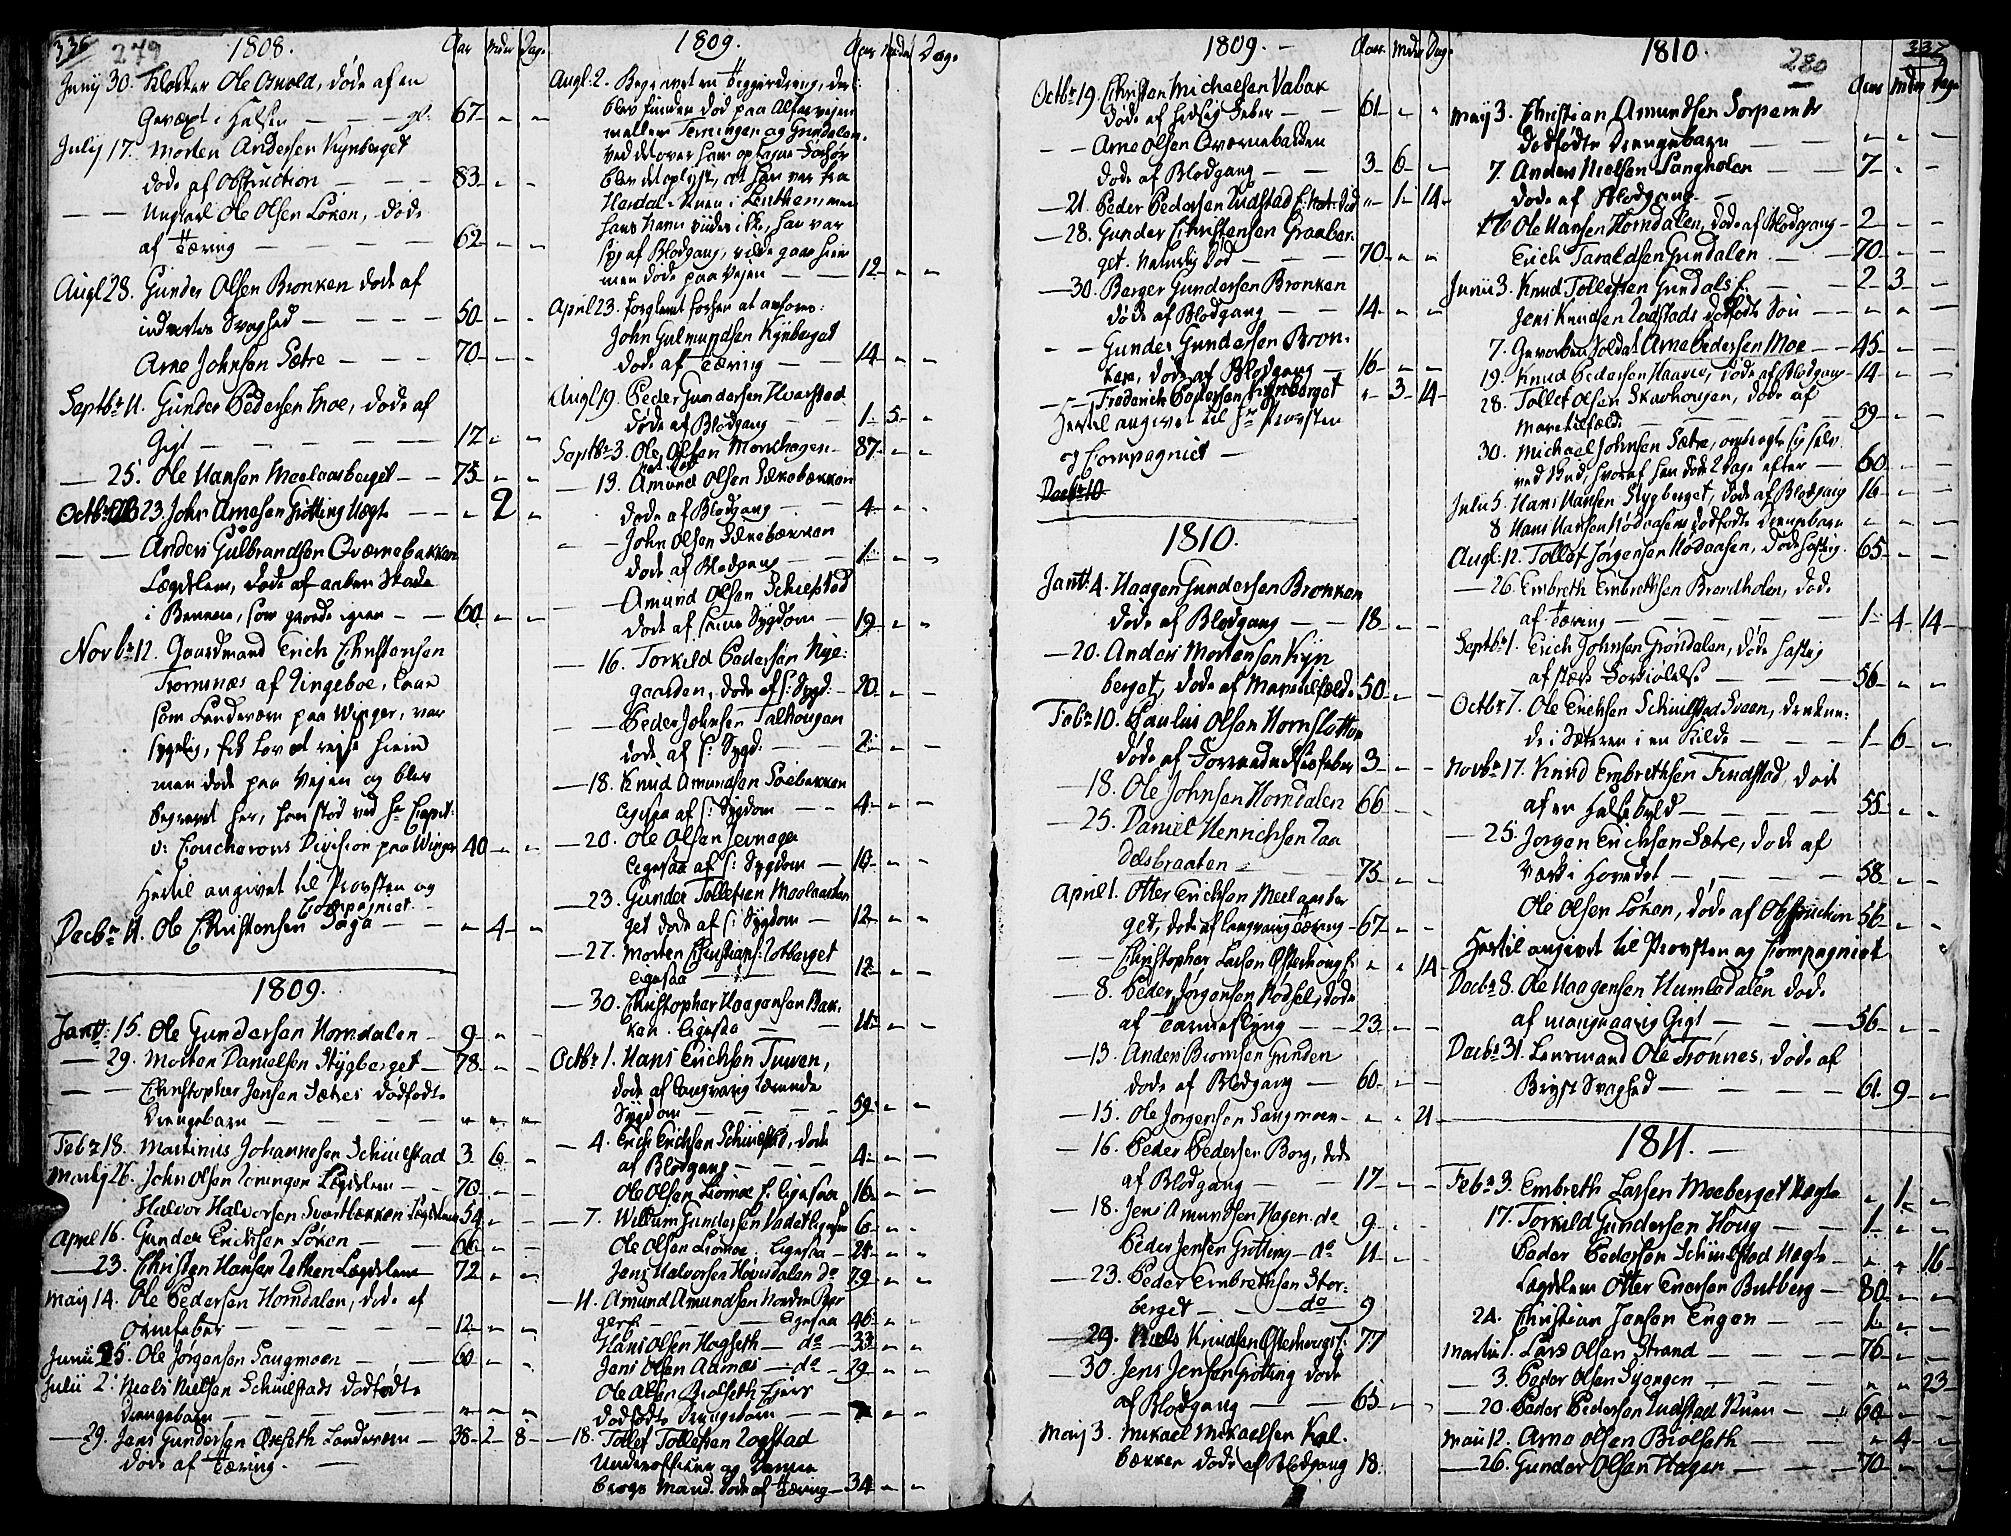 336 279
1808. Aar Mdr Dag.
Junij 30. Klokker Ole Osvold, døde af en
Gevæxt i Halsen — — gl. 67 - -
Julij 17. Morten Andersen Kynberget
døde af Obstruction — — 83 - -
— — Ungkarl Ole Olsen Løken, døde
af Tæring — — — 62 - -
Augl 28. Gunder Olsen Bronken døde af
indvortes Svaghed — — — 50 - -
Arne Johnsen Sætre — — — 70 - -
Septbr 11. Gunder Pedersen Moe, døde af
Gigt — — — — 17 - -
— 25. Ole Hansen Meelaasberget — — 75 - -
Octbr 23 John Arnesen Grøtting Nøgt — — - 2 -
— — Anders Gulbrandsen Qværnebakken
Lægdslem, døde af anden Skade
i Benene, som giorde igien — — 60 - -
Novbr 12. Gaardmand Erich Christensen
Tromnæs af Ringeboe, laae
som Landeværn paa Winger, var
sygelig, fik Lov at rejse hiem
men døde paa Vejen og blev
begravet her, han stod ved Hr Capit:
v: Coucherons Division paa Winger 40 - -
Hertil angivet til Provsten og
Compagniet
Decbr 11. Ole Christensen Saga — — - 4 -
1809.
Janu: 15. Ole Gundersen Horndalen — 9 - -
— 29. Morten Danielsen Stygberget — 78 - -
— — Christopher Jensen Sætres dødfødte
Drengebarn — — — " " "
Febr 18. Martinus Johannesen Schulstad 3 6 -
Martij 26. John Olsen Lægdslem — — 70 - -
Halvor Halvorsen Svartbækken Lægdslem 54 - -
April 16. Gunder Erichsen Løken — — 66 - -
— 23. Christen Hansen Lægdslem 72 - -
Maij 14. Ole Pedersen Horndalen, døde af
— — — — 12 - -
Junii 25. Ole Jørgensen Saugmoen — — 60 - -
Julii 2. Niels Nielsen Schulstads dødfødte
Drengebarn — — — - - -
— 29. Jens Gundersen Ørseth Landeværn — 38 - 2 - 8 -
døde af Tæring. —
1809. Aar Mdr Dage
Augl: 2. Begravet en Tiggerdreng, der
blev funden død paa Alfarvejen
mellem Terningen og Grindalen,
ved det over ham optagne Forhør
blev det oplyst, at han var fra
Herdal i Lenthen, men
hans Navn vides ikke, han var
syg af Blodgang, vilde gaae hiem
men døde paa Vejen — — 12 - -
April 23. forglemt forhen at anføre:
John Gulmundsen Kynberget
døde af Tæring — 14 - -
Augl 19. Peder Gundersen Hvarstad
døde af Blodgang — — 1 - 5 -
Septbr 3. Ole Olsen Mornhagen — 87 - -
— 13. Amund Olsen Ilkebækken
døde af Blodgang — — 4 - -
— — John Olsen Ilkebækken
døde af Blodgang — — 1 - -
— — Amund Olsen Schiefstad
døde af samme Sygdom — 19 - -
— 16. Torkild Pedersen Nye-
gaarden, døde af s: Sygd: — 20 - -
— — Peder Johnsen Talhougen
døde af s: Sygd: — — 2 - -
— 18. Knud Amundsen Soebakken
ligesaa af s: Sygdom — — 4 - -
— 20. Ole Olsen
ligesaa af s: Sygdom — 10 - -
— 23. Gunder Tollefsen Meelaasber-
get døde af s: Sygdom — 12 - -
— 27. Morten Christians: Ilsberget
ligesaa — — 12 - -
— 30. Christopher Haagensen Bak-
ken. Ligesaa — — 11 - -
Octbr 1. Hans Erichsen Tuven,
døde af langvarig tærende
Sygdom — — — 59 - -
— 4. Erich Erichsen Schulstad, døde
af Blodgang — — — 4 - -
Ole Olsen Liømoe s: ligesaa 16 - -
— 7. Willum Gundersen ligesaa 6 - -
Ole Olsen Liømoe, ligesaa — 21 - -
Jens Halvorsen Hovsdalen do 79 - -
— 11. Amund Amundsen Nordre
— — ligesaa 46 - -
Hans Olsen Hagseth — do — 33 - -
Jens Olsen Aamæs — do — 29 - -
Ole Olsen Biølseth Eiers
dødfødte Drengebarn — — - -
— 18. Tollef Tollefsen Zogstad
Underofficer og Danne-
brogs Mand. døde af Tæring — 34 - -
1809. — Aar Mdr Dag.
Octbr 19. Christen Michaelsen Vabak
døde af hidsig Feber — — 61 - -
— — Arne Olsen Qværnebakken
døde af Blodgang — — 3 - 6 -
— 21. Peder Pedersen Rudstad " 1 - 14 -
— 28. Gunder Christensen Graaber-
get. Naturlig Død — — — 70 - -
— 30. Berger Gundersen Bronken
døde af Blodgang — — 14 - -
— — Gunder Gundersen Bron-
ken, døde af Blodgang — 16 - -
— — Frederich Pedersen Kynberget " 3 - 14 -
Hertil angivet til Hr Provsten
og Compagniet —
Decbr 10
1810.
Janu: 4. Haagen Gundersen Bronken
døde af Blodgang — — 18 - -
— 20. Anders Mortensen Kyn
berget, døde af 50 - -
Febr 10. Paulus Olsen Hornslotten
døde af Forraadnelsesfeber 3 - -
— 18. Ole Johnsen Horndalen 66 - -
— 25. Daniel Henrichsen Laa
delsbraaten — 75 - -
April 1. Otter Erichsen Meelaasber
get, døde af langvarig Tæring — 67 - -
— — Christopher Larsen Østerhougs " " 14
— 8. Peder Jørgensen Nødsel, døde
af Tarmeslyng — — 23 - -
— 13. Anders Biørnsen Grinden
døde af Blodgang — 60 - -
— 15. Ole Jørgensen Saugmoen — - - 21
— 16. Peder Pedersen Borg, døde
af Blodgang — — 17 - -
— 18. Jens Amundsen Hagen. do 9 - -
Peder Jensen Grøtting — do 11 - -
— 23. Peder Embrethsen Stor-
berget — — do 9
— 29. Niels Knudsen Østerhougs 77
— 30. Jens Jensen Grøtting døde
af Blodgang — — 65 - -
Maij 3. Mikael Mikaelsen Kal-
bækken døde af Blodgang 18.
1810. 280 337
Aar Mdr Dage
Maij 3. Christian Amundsen Sorpernes
dødfødte Drengebarn — - - -
7. Anders Nielsen Langholen — 7 - -
døde af Blodgang —
16 Ole Hansen Horndalen, døde af Blodgang — 2 - -
Erich Taraldsen Grindalen — 70 - -
Junii 3. Knud Tollefsen Grindals E. — 2 - 3 -
Jens Knudsen Rudstads dødfødte Søn - - -
7. Gevorben Soldat Arne Pedersen Moe — 45 - -
19. Knud Pedersen Haaver, døde af Blodgang — 14 - -
28. Tollef Olsen Skovhougen, døde af
— — — 59 - -
30. Michael Johnsen Sætre, ombragte sig selv
ved Skud, hvoraf han døde 2 Dage efter — 60 - -
Julii 5. Hans Hansen Stygberget, døde af Blodgang 16 - -
8 Hans Hansen Nødaasens dødfødte Drengebarn - - -
Augl: 12. Tollef Jørgensen Nødaasen, døde hastig. 65 - -
— 26. Embreth Embrethsen Brandholen, døde
af Tæring — — — 1 - 4 14 -
Septbr 1. Erich Johnsen Grøndalen, døde hastig
af stærk Forkiølelse — — 56 - -
Octbr 7. Ole Erichsen Schulstad Sveen, druknе-
de i Sæteren i en Kilde — — 1 - 6 -
Novbr 17. Knud Embrethsen Findstad, døde
af en Halsbyld — — — 55 - -
— 25 Jørgen Erichsen Sætre, døde af
Værk i Hovedet — — — 58 - -
Ole Olsen Løken, døde af Obstruction 56 - -
Hertil angivet til Provsten og Compagniet
Decbr 8. Ole Haagensen Humledalen døde
af mangeaarig Gigt — — — 56 - -
Decbr 31. Lensmand Ole Trønnes, døde af
Bryst Svaghed — — — 61 - 9 -
1811. —
Febr 3. Embreth Larsen Moeberget Nøgt - 1 -
17. Torkild Gundersen Houg — — 1 - -
Peder Pedersen Schulstad Nøgt - - 16 -
Lægdslem Otter Enersen Butberg — 80 - -
24. Christian Jensen Engen — — 1 - -
Martii 1. Lars Olsen Strand — — — 76 - -
— 3. Peder Olsen — — — - - 23 -
— 20. Peder Pedersen Rudstad — 60 - -
Maii 12. Arne Olsen Biølseth — — - 4 -
— 26. Gunder Olsen Hagen — — 70 - -